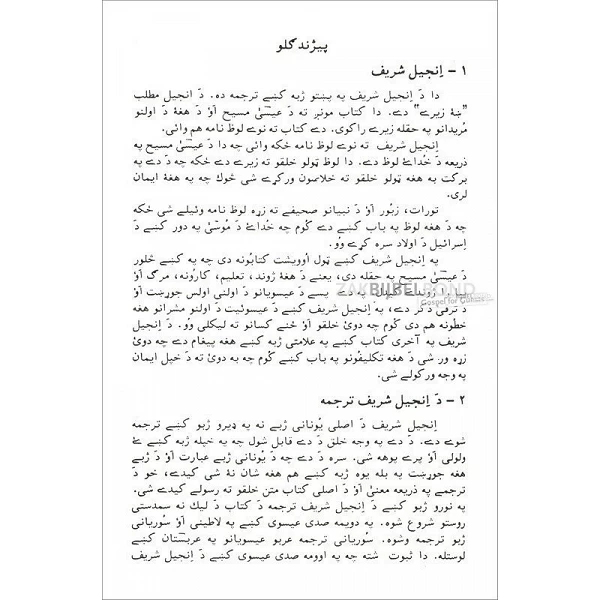 پيژندګلو
١ – اِنجيل شريف
دا دَ اِنجيل شريف په پښتو ژبه کښے ترجمه ده. دَ انجيل مطلب
”ښۀ زيرے“ دے. دا کتاب مونږ ته دَ عيسىٰ مسيح اَؤ دَ هغۀ دَ اولنو
مُريدانو په حقله زيرے راکوى. دے کتاب ته نوے لوظ نامه هم وائى.
اِنجيل شريف ته نوے لوظ نامه ځکه وائى چه دا دَ عيسىٰ مسيح په
ذريعه دَ خُدائے لوظ دے. دا لوظ ټولو خلقو ته زيرے دے ځکه چه دَ دے په
برکت به هغه ټولو خلقو ته خلاصون ورکړے شى څوک چه په هغۀ ايمان
لرى.
تورات، زبُور اَؤ دَ نبيانو صحيفے ته زړه لوظ نامه وئيلے شى ځکه
چه دَ هغه لوظ په باب کښے دے کُوم چه خُدائے دَ موسىٰ په دور کښے دَ
اِسرائيل دَ اولاد سره کړے وُو.
په اِنجيل شريف کښے ټول اووۀيشت کتابونه دى چه په کښے څلور
دَ عيسىٰ مسيح په حقله دى، يعنے دَ هغۀ ژوند، تعليم، کارُونه، مرګ اَؤ
بيا ژوندے پسے دَ عيسويانو دَ اولنى اولس جوړښت اَؤ
دَ ترقئ ذکر دے، په اِنجيل شريف کښے دَ عيسوئيت دَ اولنو مشرانو هغه
خطونه هم دى کُوم چه دوئ خلقو اَؤ ځنے کسانو ته ليکلى وُو. دَ اِنجيل
شريف په آخرى کتاب کښے په علامتى ژبه کښے هغه پيغام دے چه دوئ
زړه ور شى دَ هغه تکليفُونو په باب کښے کُوم چه به دوئ ته دَ خپل ايمان
په وجه ورکولے شى.
٢ – دَ اِنجيل شريف ترجمه
اِنجيل شريف دَ اصلى يُونانى ژبے نه په ډيرو ژبو کښے ترجمه
شوے دے. دَ دے په وجه خلق دَ دے قابل شول چه په خپله ژبه کښے ئے
ولولى اَؤ پرے پوهه شى. سره دَ دے چه دَ يُونانى ژبے عبارت اَؤ دَ ژبے
هغه جوړښت په بله يوه ژبه کښے هم هغه شان نۀ شى کيدے، خو دَ
ترجمے په ذريعه معنىٰ اَؤ دَ اصلى کتاب متن خلقو ته رسولے کيدے شى.
په نورو ژبو کښے دَ اِنجيل شريف ترجمه دَ کتاب دَ ليک نه سمدستى
روستو شروع شوه. په دويمه صدى عيسوى کښے په لاطينى اَؤ سوريانى
ژبو کښے ترجمه وشوه. سوريانى ترجمه عربو عيسويانو په عربستان کښے
لوستله. دا ثبوت شته چه په اوومه صدى عيسوى کښے دَ اِنجيل شريف
ZAKBIJBELBOND
Gospel for Guests